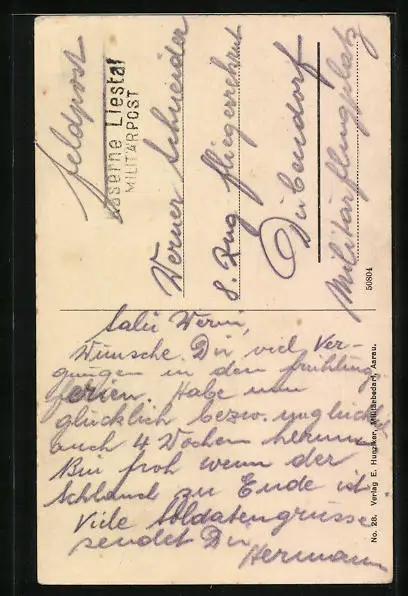 Feldpost
Kaserne Liestal
MILITÄRPOST
Werner Schneider
8. Zug Fliegerrekrut
Dübendorf
Militärflugplatz
50804
Salü Werni,
Wünsche Dir viel Ver-
gnügen in den Frühlings
ferien. Habe nun
glücklich bezw. unglücklich
auch 4 Wochen herum
Bin froh wenn der
Schlauch zu Ende ist
Viele Soldatengrüsse
sendet Dir
Hermann
No. 28. Verlag E. Hunziker, Militärbedarf, Aarau.